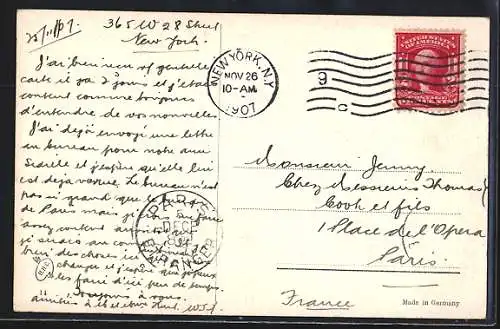 25/11/07.
365 W 28 Street
New York.
J'ai bien reçu votre gentille
carte il y a 2 jours et j'étais
content comme toujours
d'entendre de vos nouvelles.
J'ai déjà envoyé une lettre
au bureau pour notre ami
et j'espère qu'elle lui
est déjà reçue. Le bureau n'est
pas si grand que le bureau
de Paris mais j'en suis
assez content
je serais au
bien des choses ici
changer et j'espère que
les faire d'ici peu de temps.
Toujours à vous.
amitiés à
NEW YORK, N.Y.
NOV 26
10-AM
1907
9
C
UNITED STATES
OF AMERICA
POSTAGE
PARIS
DEC
ETRANGER
Monsieur Jenny.
Chez Messieurs Thomas
Cook et fils
1 Place de l'Opera
Paris.
France
Made in Germany